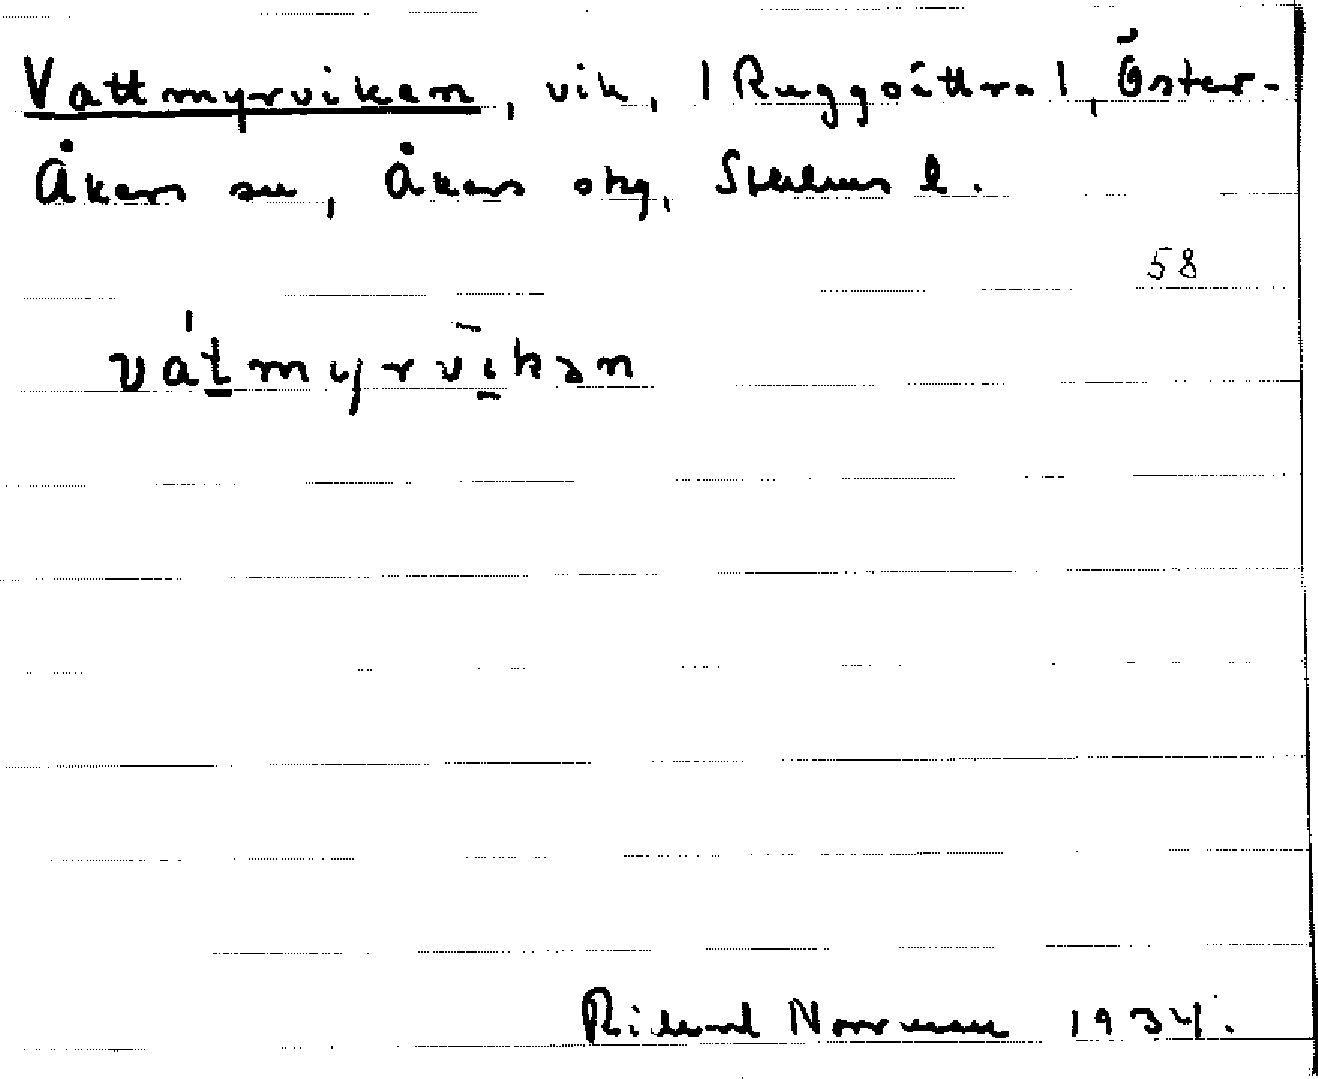 Vattmyrviken, vik, |Ruggsättra|, Öster-
Åkers sn, Åkers skg, Sthlms l.
58
vátmyrvikən
Rickard Norrman 1934.